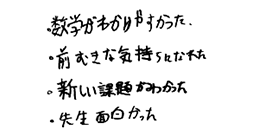 ・数学がわかりやすかった.
・前むきな気持ちになれた
・新しい課題がわかった
・先生面白かった